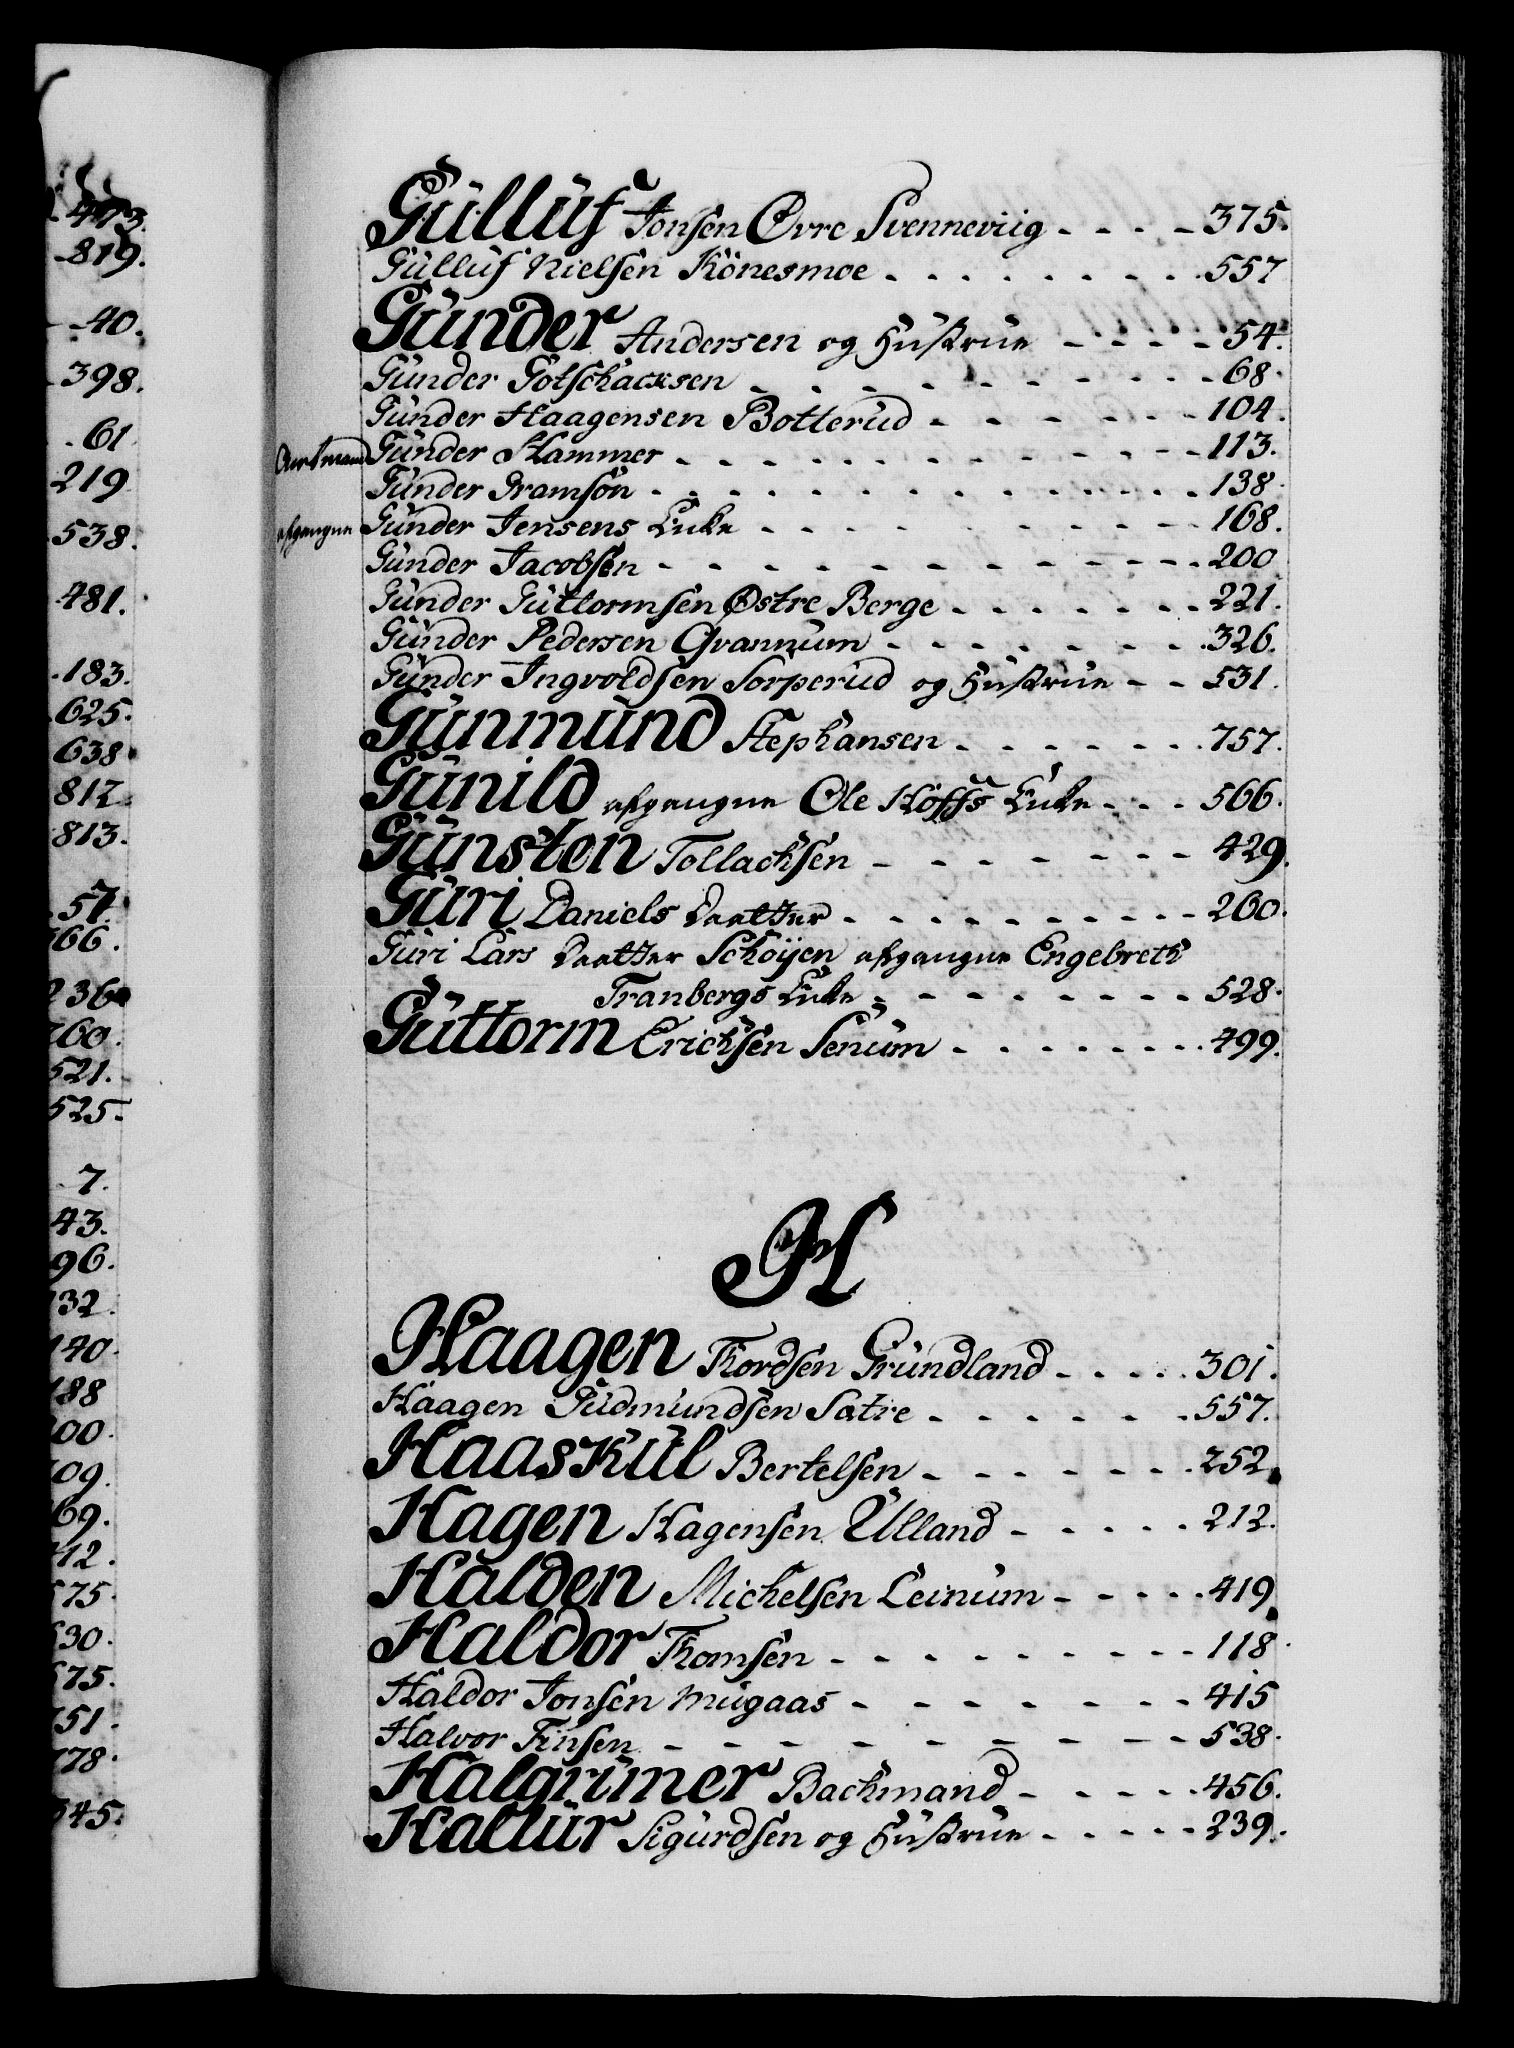 473.
819.
40.
398.
61
219
538.
481.
183.
625.
638
812
813.
57.
66.
236
60.
521.
525.
7.
43.
96.
32.
140.
188
00.
09.
69.
12.
575.
30.
575.
51.
78.
345.
Gulluf Jonsen Øvre Svenneviig - - - - 375.
Gulluf Nielsen Könesmoe - - - - - - - - 557
Gunder Andersen og Hustrue - - - - - 54.
Gunder Gotschacksen - - - - - - - - - - 68.
Gunder Haagensen Botterud - - - - - - 104.
Amtmand Gunder Hammer - - - - - - - - - - - 113.
Gunder Gramsøn - - - - - - - - - - - - 138.
afgangne Gunder Jensens Enke - - - - - - - - - 168.
Gunder Jacobsen - - - - - - - - - - - - 200
Gunder Guttormsen Østre Berge - - - - - - 221.
Gunder Pedersen Qvannum - - - - - - - 326.
Gunder Ingvoldsen Torperud og Hustrue - - 531.
Gunmund Stephansen - - - - - - - 757.
Gunild afgangne Ole Hoffs Enke - - - 566.
Gunsten Tollachsen - - - - - - - 429.
Guri Daniels Daatter - - - - - - - - - 260.
Guri Lars Daatter Schøijen afgangne Engebreth
Tranbergs Enke - - - - - - - - 528.
Guttorm Erichsen Senum - - - - - - - - 499.
H
Haagen Thordsen Grundland - - - - 301.
Haagen Gudmundsen Satre - - - - - - 557.
Haaskul Bertelsen - - - - - - - 252.
Hagen Hagensen Ulland - - - - - 212.
Halden Michelsen Leinum - - - - - 419
Haldor Thomsen - - - - - - - - - 118.
Haldor Jonsen Mugaas - - - - - - - 415
Halvor Finsen - - - - - - - - - - 538.
Halgrimer Bachmand - - - - - 456.
Hallur Sigurdsen og Hustrue - - - - - 239.